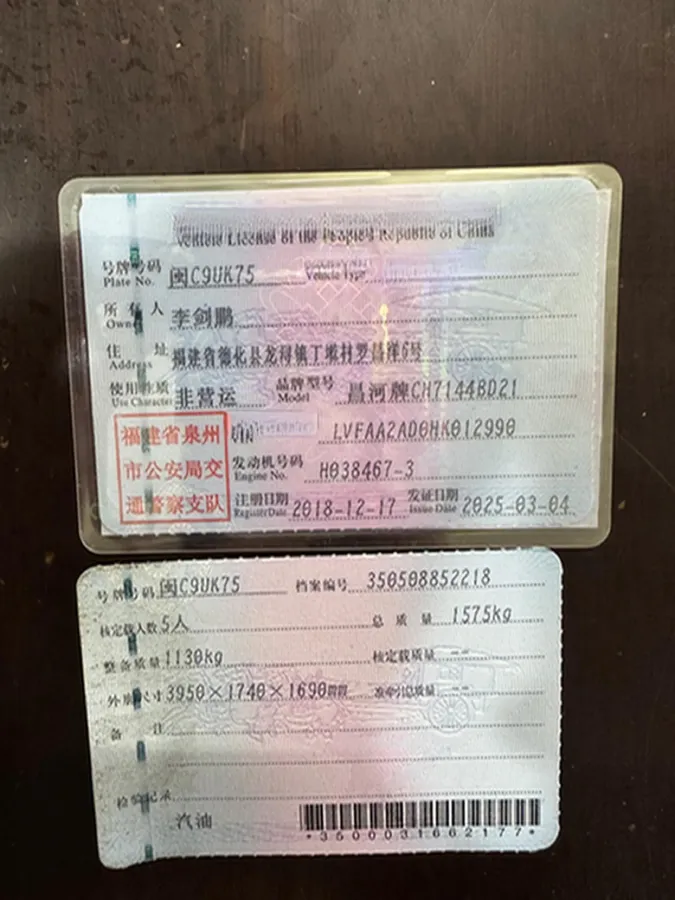 Vehicle License of the People's Republic of China
号牌号码 闽C9UK75 Vehicle Type
Plate No.
所有人 李剑鹏
Owner
住址 福建省德化县龙浔镇丁墘村罗昌洋6号
Address
使用性质 非营运 品牌型号 昌河牌CH7144BD21
Use Character Model
福建省泉州
市公安局交
通警察支队
VIN LVFAA2AD0HK012990
发动机号码 H038467-3
Engine No.
注册日期 2018-12-17 发证日期 2025-03-04
Register Date Issue Date
号牌号码 闽C9UK75 档案编号 350508852218
核定载人数 5人 总质量 1575kg
整备质量 1130kg 核定载质量 --
外廓尺寸 3950×1740×1690mm 准牵引总质量 --
备注
检验记录
汽油
*3500031662177*